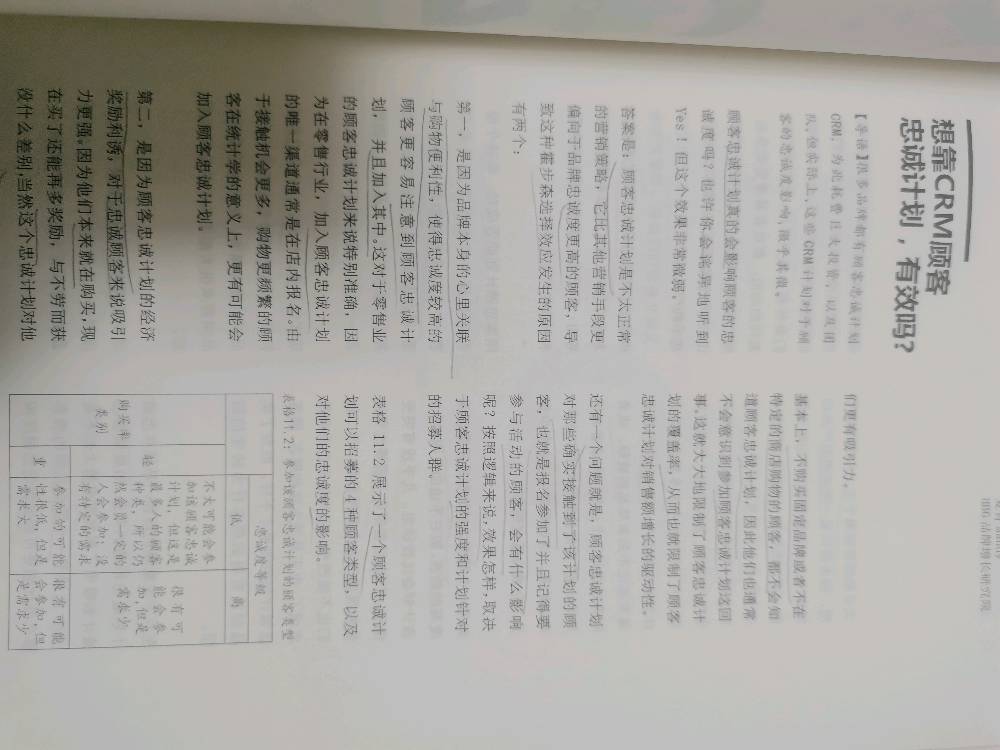 品牌增长研究院
想靠CRM顾客
忠诚计划，有效吗?
【导语】很多品牌都有顾客忠诚计划
CRM，为此耗费巨大投资，以及团
队。但实际上，这些CRM计划对于顾
客的忠诚度影响，微乎其微。
顾客忠诚计划真的会影响顾客的忠
诚度吗？也许你会诧异地听到
Yes！但这个效果非常微弱。
答案是：顾客忠诚计划是不太正常
的营销策略，它比其他营销手段更
偏向于品牌忠诚度更高的顾客，导
致这种霍步森选择效应发生的原因
有两个：
第一，是因为品牌本身的心里关联
与购物便利性，使得忠诚度较高的
顾客更容易注意到顾客忠诚计
划，并且加入其中。这对于零售业
的顾客忠诚计划来说特别准确，因
为在零售行业，加入顾客忠诚计划
的唯一渠道通常是在店内报名。由
于接触机会更多，购物更频繁的顾
客在统计学的意义上，更有可能会
加入顾客忠诚计划。
第二，是因为顾客忠诚计划的经济
奖励利诱，对于忠诚顾客来说吸引
力更强。因为他们本来就在购买，现
在买了还能再多奖励，与不劳而获
没什么差别，当然这个忠诚计划对他
们更有吸引力。
基本上，不购买固定品牌或者不在
特定的商店购物的顾客，都不会知
道顾客忠诚计划，因此他们也通常
不会意识到参加顾客忠诚计划这回
事。这就大大地限制了顾客忠诚计
划的覆盖率，从而也就限制了顾客
忠诚计划对销售额增长的驱动性。
还有一个问题就是，顾客忠诚计划
对那些确实接触到了该计划的顾
客，也就是报名参加了并且记得要
参与活动的顾客，会有什么影响
呢？按照逻辑来说，效果怎样，取决
于顾客忠诚计划的强度和计划针对
的招募人群。
表格 11.2 展示了一个顾客忠诚计
划可以招募的4种顾客类型，以及
对他们的忠诚度的影响。
表格11.2：参加该顾客忠诚计划的顾客类型
忠诚度等级
购买率
类别
低
高
轻
不大可能会参
加该顾客忠诚
计划，但这是
最多人的顾客
种类，所以仍
然会员一定的
人会参加；没
有特定的需求
很有可
能会参
加，但是
需求少
业
参加的可能
性很低，但是
需求大
很有可能
会参加，但
是需求少